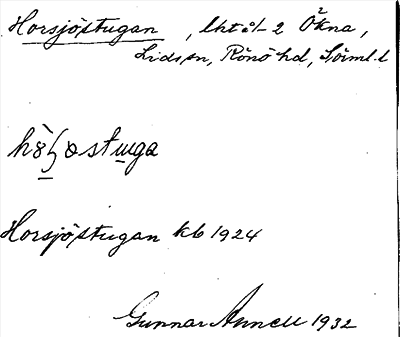 Horsjöstugan, lht å/- 2 Ökna,
Lids sn, Rönö hd, Sörml. l
Horsjöstugan kb 1924
Gunnar Annell 1932